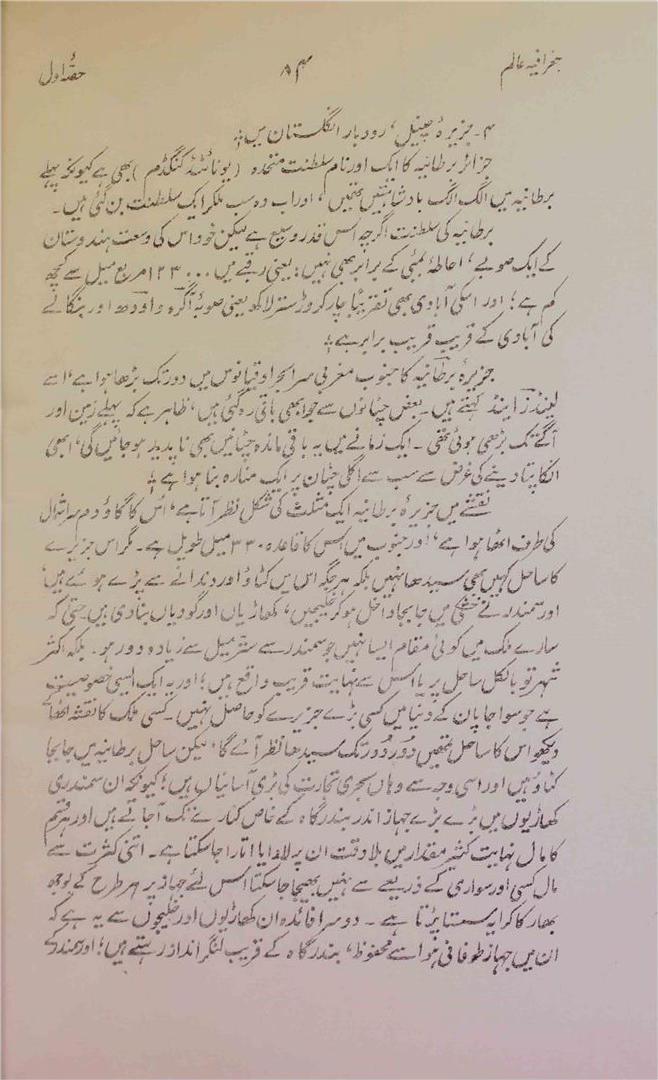 جغرافیہ عالم ۸۴ حصّہ اول
۴۔ جزیرۂ چینل، رودبار انگلستان میں؛
جزائر برطانیہ کا ایک اور نام سلطنت متحدہ (یونائٹڈ کنگڈم) بھی ہے کیونکہ پہلے
برطانیہ میں الگ الگ بادشاہتیں تھیں، اور اب وہ سب ملکر ایک سلطنت بن گئی ہیں۔
برطانیہ کی سلطنت اگرچہ اس قدر وسیع ہے لیکن خود اس کی وسعت ہندوستان
کے ایک صوبے، احاطۂ بمبئی کے برابر بھی نہیں؛ یعنی رقبے میں ۱۲۳۰۰۰ مربع میل سے کچھ
کم ہے؛ اور اسکی آبادی بھی تقریبًا چار کروڑ ستر لاکھ یعنی صوبۂ آگرہ و اودھ اور بنگالے
کی آبادی کے قریب قریب برابر ہے؛
جزیرۂ برطانیہ کا جنوب مغربی سرا بحر اوقیانوس میں دور تک بڑھا ہوا ہے، اسے
لینڈز اینڈ کہتے ہیں۔ بعض چٹانوں سے جو ابھی باقی رہ گئی ہیں، ظاہر ہے کہ پہلے زمین اور
آگے تک بڑھی ہوئی تھی۔ ایک زمانے میں یہ باقی ماندہ چٹانیں بھی ناپدید ہو جائیں گی، ابھی
انکا پتا دینے کی غرض سے سب سے اگلی چٹان پر ایک منارہ بنا ہوا ہے؛
نقشے میں جزیرۂ برطانیہ ایک مثلث کی شکل نظر آتا ہے، اُس کا گاؤدم سرا شمال
کی طرف اٹھا ہوا ہے، اور جنوب میں اس کا قاعدہ ۳۳۰ میل طویل ہے۔ مگر اس جزیرے
کا ساحل کہیں بھی سیدھا نہیں بلکہ ہر جگہ اس میں کٹاؤ اور دندانے سے پڑے ہوئے ہیں،
اور سمندر نے خشکی میں جابجا داخل ہو کر خلیجیں، کھاڑیاں اور گودیاں بنا دی ہیں حتیٰ کہ
سارے ملک میں کوئی مقام ایسا نہیں جو سمندر سے ستر میل سے زیادہ دور ہو۔ بلکہ اکثر
شہر تو بالکل ساحل پر یا اس سے نہایت قریب واقع ہیں؛ اور یہ ایک ایسی خصوصیت
ہے جو سوا جاپان کے دنیا میں کسی بڑے جزیرے کو حاصل نہیں۔ کسی ملک کا نقشہ اٹھا کے
دیکھو اس کا ساحل تمھیں دُور دُور تک سیدھا نظر آئے گا، لیکن ساحل برطانیہ میں جابجا
کٹاؤ ہیں اور اسی وجہ سے وہاں بحری تجارت کی بڑی آسانیاں ہیں؛ کیونکہ ان سمندری
کھاڑیوں میں بڑے بڑے جہاز اندر بندرگاہ کے خاص کنارے تک آ جاتے ہیں اور ہر قسم
کا مال نہایت کثیر مقدار میں بلا دقت ان پر لادا یا اتارا جا سکتا ہے۔ اتنی کثرت سے
مال کسی اور سواری کے ذریعے سے نہیں بھیجا جا سکتا اس لئے جہاز پر ہر طرح کے بوجھ
بھار کا کرایہ سستا پڑتا ہے۔ دوسرا فائدہ ان کھاڑیوں اور خلیجوں سے یہ ہے کہ
ان میں جہاز طوفانی ہوا سے محفوظ، بندرگاہ کے قریب لنگر انداز رہتے ہیں؛ اور سمندر کے